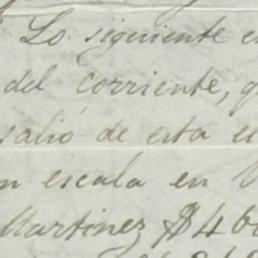 Lo siguiente
del corriente,
salió de esta el
escala en
Martinez $46